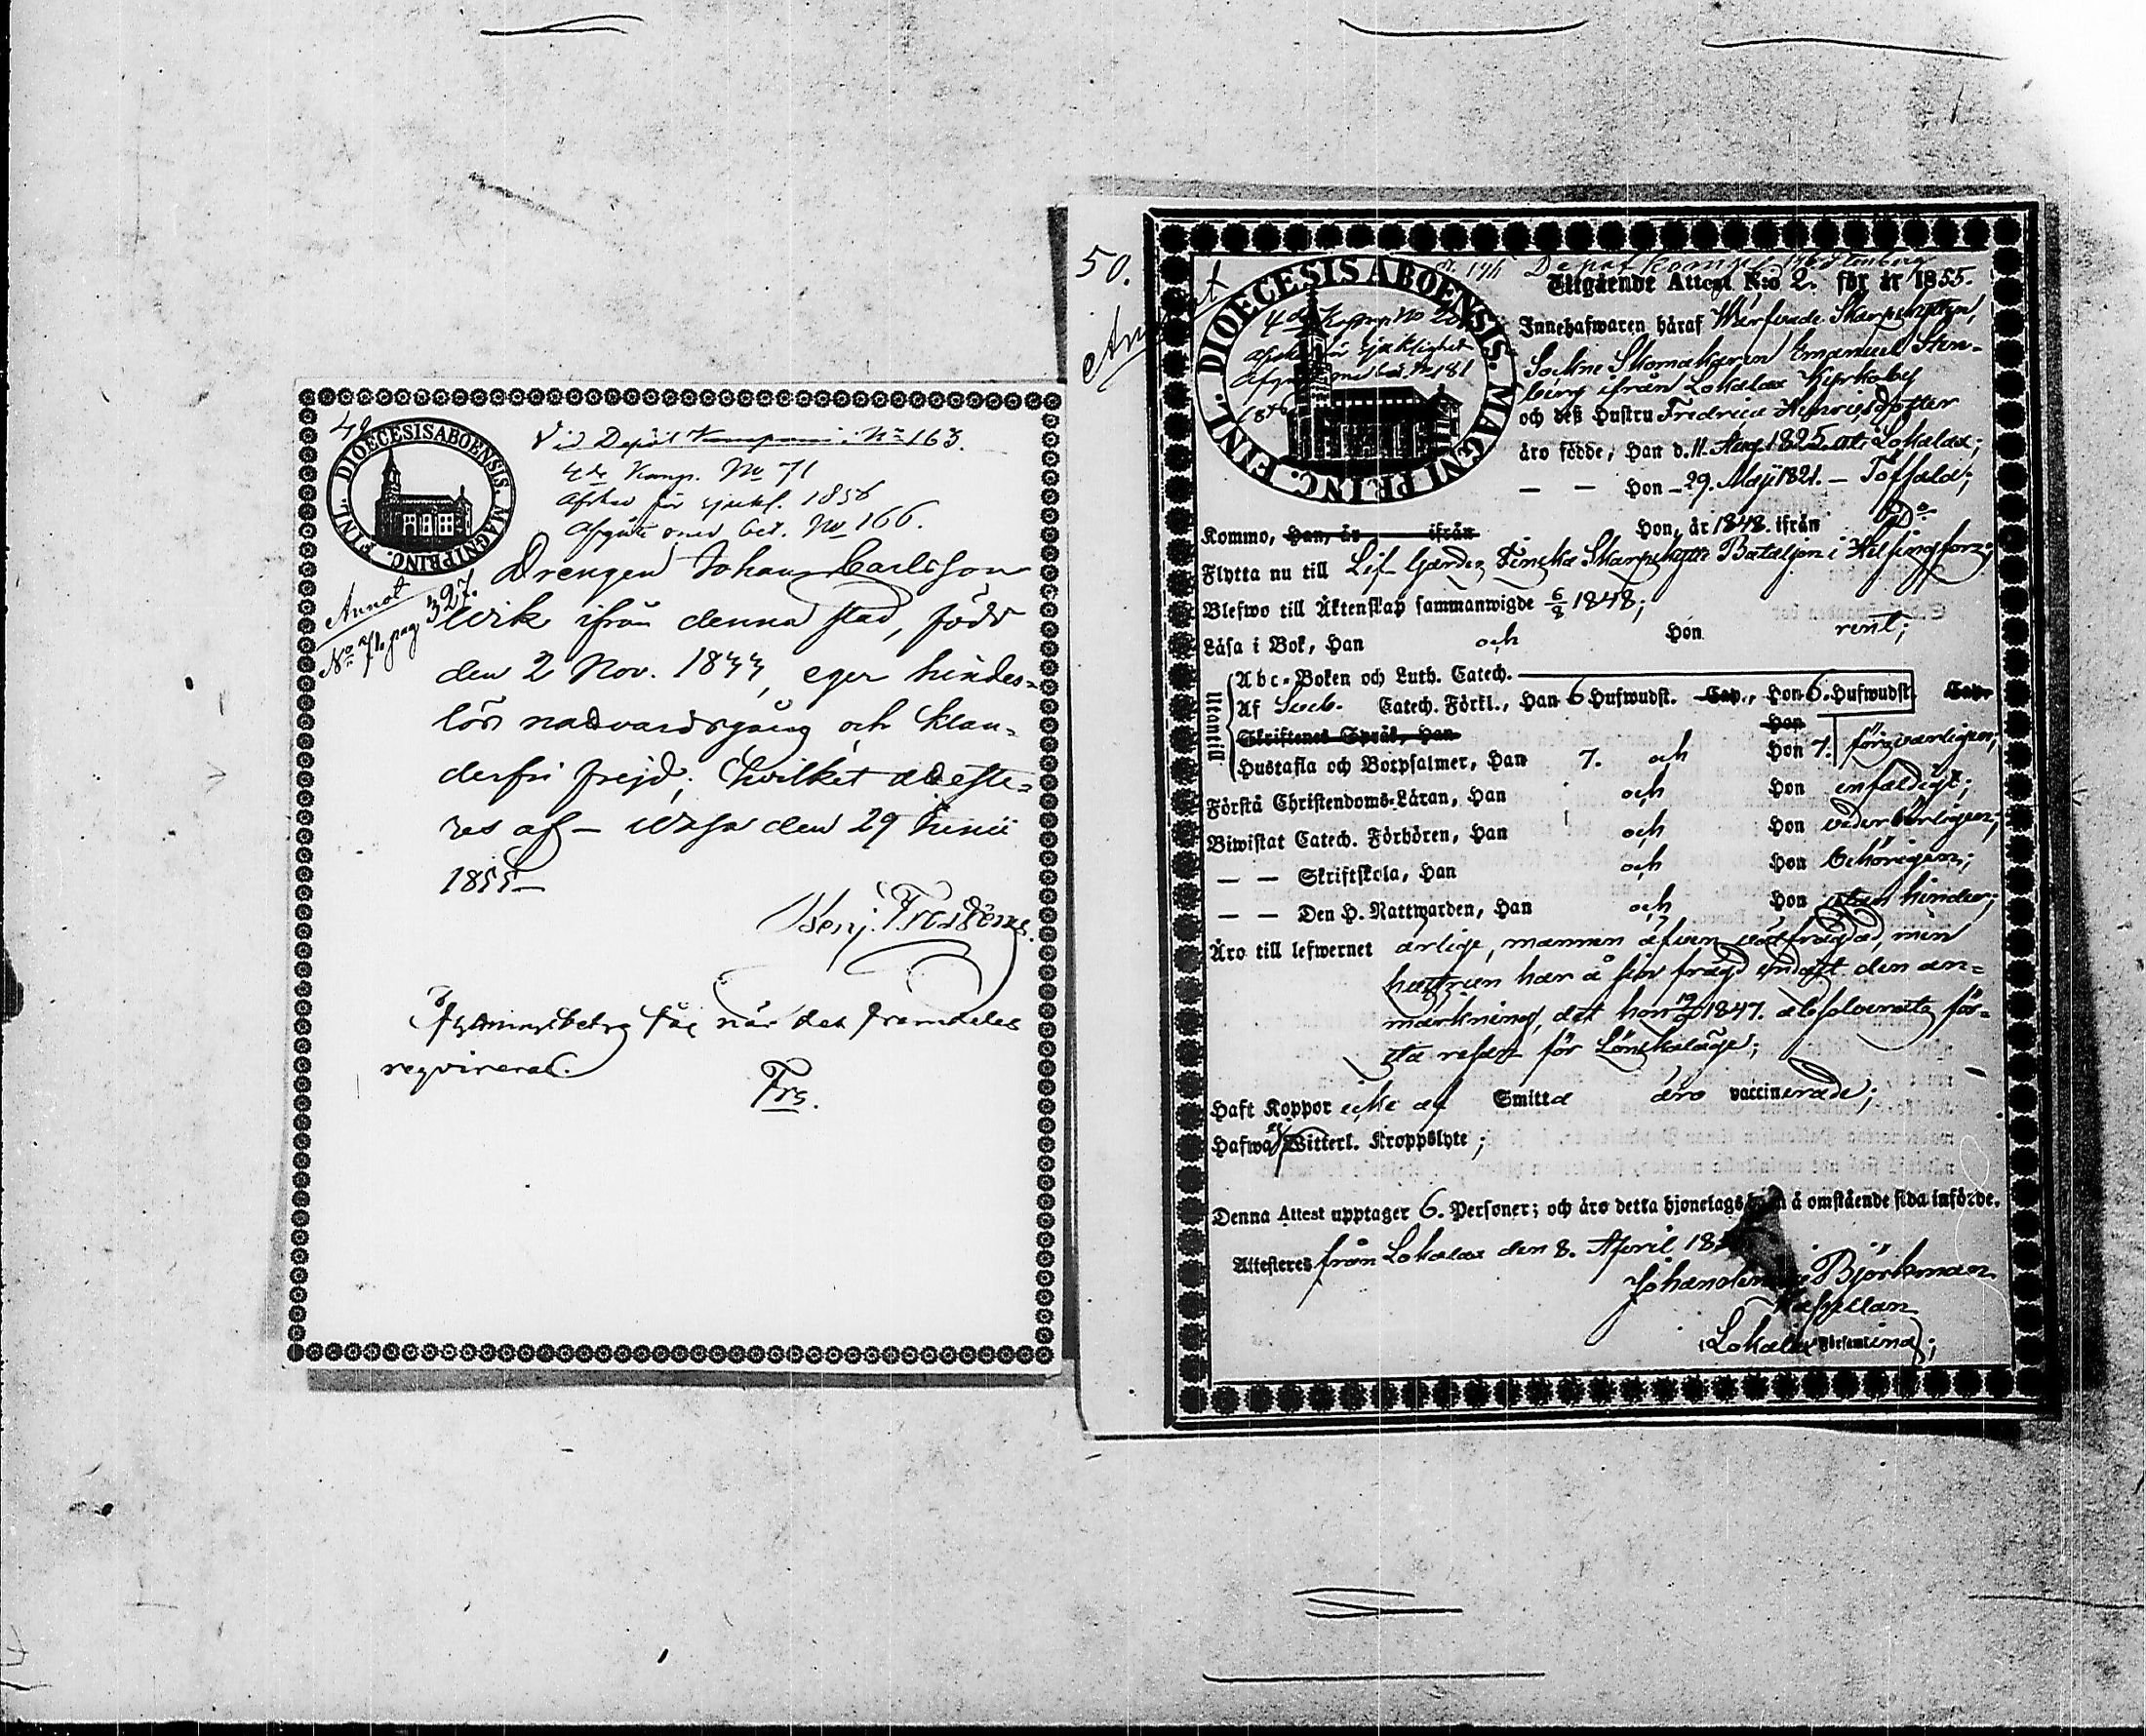 49.
DIOECESIS ABOENSIS. MAGNI PRINC. FINL.
Vid Depôt Kompani: No 163.
4de Komp. No 71
Afsked för sjukl. 1856
Afgått med bet. No 166.
Annot
No 71. pag 327.
Drengen Johan Carlsson
Wik ifrån denna stad, född
den 2 Nov. 1833, eger hinders-
lös nadvardsgång och klan-
derfri frejd; hvilket atteste-
res af – Wasa den 29 Junii
1855 –
Benj. Frosterus.
Flyttningsbetyg får när det framdeles
reqvireras.
Frs.
50.
Annot
DIOECESIS ABOENSIS. MAGNI PRINC. FINL.
Depot Komp.
4de Komp No
Afsked för sjuklighet
Afgått med bet. No 181
Utgående Attest N:o 2. för år 1855.
Innehafwaren häraf Wärfvade Skarpskytten,
Sockne Skomakaren Emanuel Sten-
berg ifrån Lokalax Kyrkoby
och deß Hustru Fredrica Henricsdotter
äro födde, Han d. 11. Aug. 1825. uti Lokalax;
— — Hon – 29. Maji 1821. – Töffsala;
Kommo, Han, år ifrån Hon, år 1848. ifrån Do
Flytta nu till Lif-Gardes Finska Skarpskytte Bataljon i Helsingfors;
Blefwo till Äktenskap sammanwigde 6/8 1848;
Läsa i Bok, Han och Hon rent;
Utantill
Abc-Boken och Luth. Catech.
Af Sveb. Catech. Förkl., Han 6 Hufwudst. Cap., Hon 6. Hufwudst. Cap.
Skriftenes Språk, Han Hon
Hustafla och Botpsalmer, Han 7. och Hon 7. försvarligen;
Förstå Christendoms-Läran, Han och Hon enfaldigt;
Biwistat Catech. Förhören, Han och Hon vederbörligen;
— — Skriftskola, Han och Hon behörigen;
— — Den H. Nattwarden, Han och Hon utan hinder;
Äro till lefwernet ärlige, mannen äfven välfrägdad, men
hustrun har å sin frägd endast den an-
märkning, det hon 1847. absolverats för-
sta resan för Lönskaläge;
Haft Koppor icke af Smitta äro vaccinerade;
Hafwa ej Witterl. Kroppslyte;
Denna Attest upptager 6. Personer; och äro detta hjonelags å omstående sida införde.
Attesteres från Lokalax den 8. April 18
Björkman
Kapellan
i Lokalax Församling;